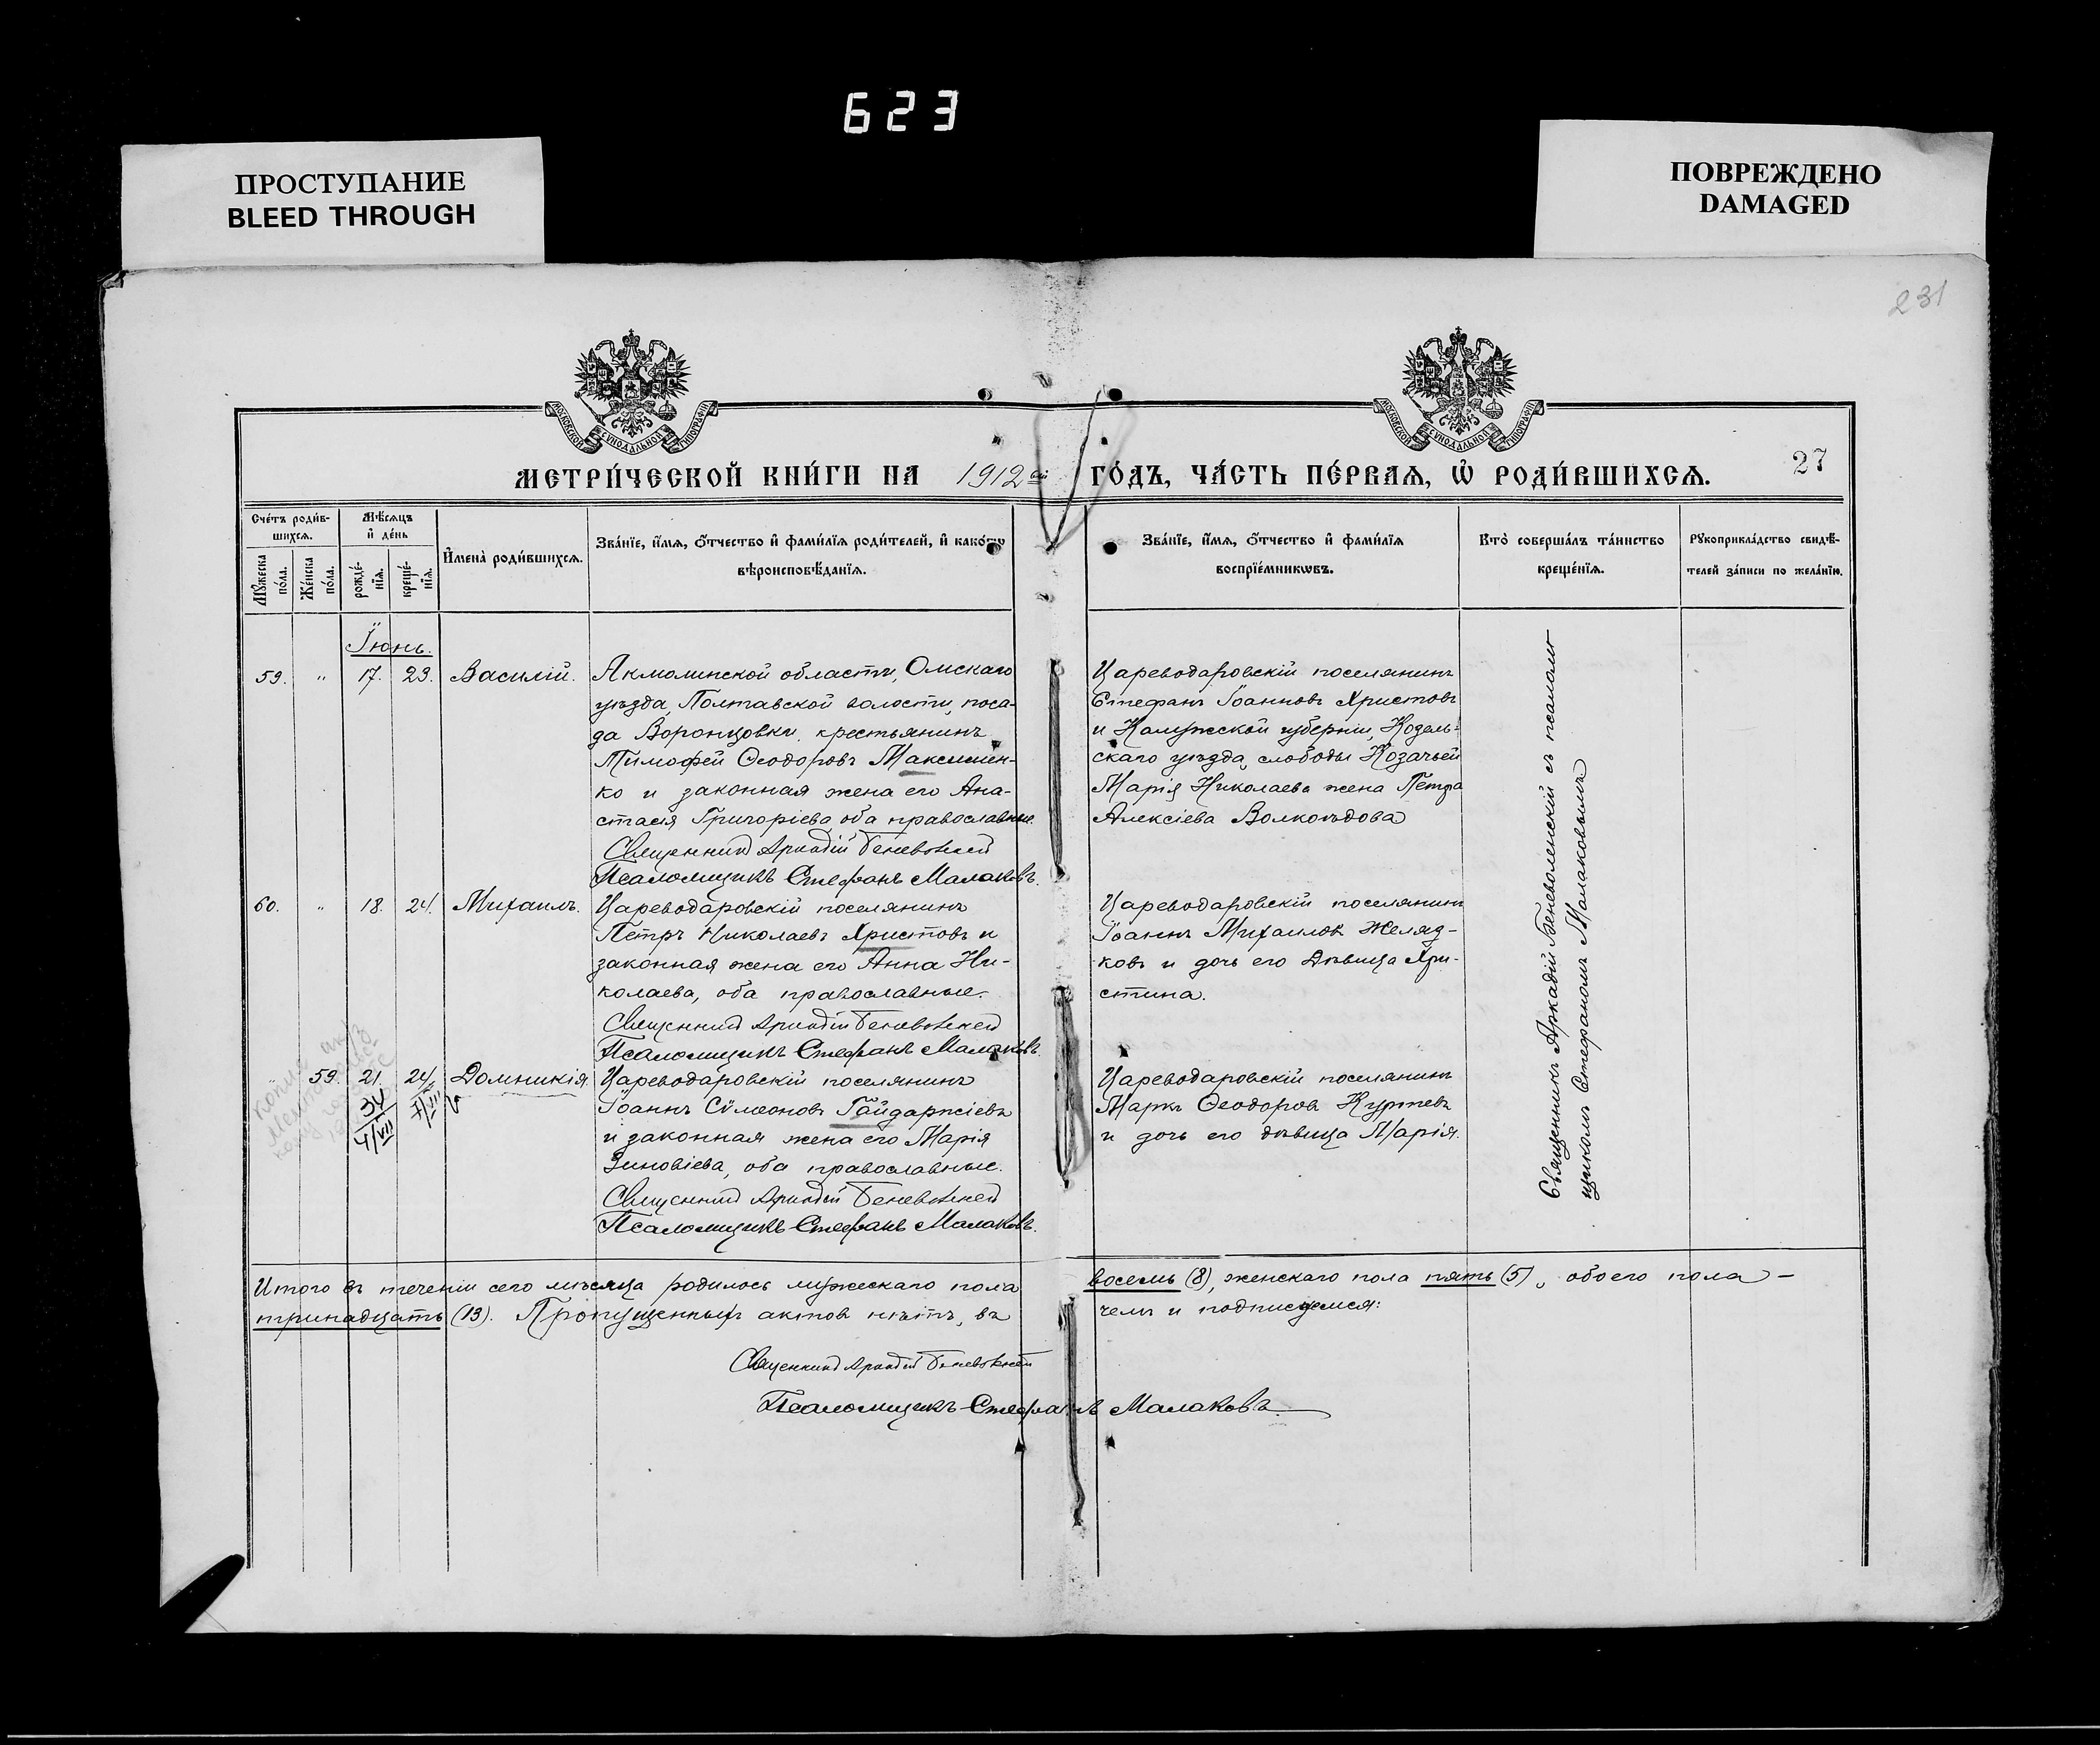 623
ПРОСТУПАНИЕ
BLEED THROUGH
ПОВРЕЖДЕНО
DAMAGED
231
МОСКОВСКОЙ СѴНОДАЛЬНОЙ ТИПОГРАФІИ
МОСКОВСКОЙ СѴНОДАЛЬНОЙ ТИПОГРАФІИ
МЕТРИ́ЧЕСКОЙ КНИ́ГИ НА 1912ой ГО́ДЪ, ЧА́СТЬ ПЕ́РВАѦ, Ѡ҆ РОДИ́ВШИХСѦ.
27
Сче́тъ роди́в-
шихсѧ.
Мꙋжеска по́ла.
Же́нска по́ла.
Мѣ́сѧцъ
и҆ де́нь
рожде́-
нїѧ.
креще́-
нїѧ.
И҆мена̀ роди́вшихсѧ.
Зва́нїе, и҆́мѧ, ѻ҆́тчество и҆ фами́лїѧ роди́телей, и҆ како́гѡ
вѣроисповѣ́данїѧ.
Зва́нїе, и҆́мѧ, ѻ҆́тчество и҆ фами́лїѧ
воспрїе́мникѡвъ.
Кто̀ соверша́лъ та́инство
креще́нїѧ.
Рꙋкоприкла́дство свидѣ́-
телей за́писи по жела́нїю.
Іюнь.
59. " 17. 23. Василій.
Акмолинской области, Омскаго
уѣзда, Полтавской волости, поса-
да Воронцовки, крестьянинъ
Тимофей Ѳеодоровъ Максимен-
ко и законная жена его Ана-
стасія Григоріева оба православные.
Священникъ Аркадій Беневоленскій
Псаломщикъ Стефанъ Малаковъ.
Цареводаровскій поселянинъ
Стефанъ Іоанновъ Христовъ
и Калужской губерніи, Козель-
скаго уѣзда, слободы Козачьей
Марія Николаева жена Петра
Алексіева Волкоѣдова
60. " 18. 24. Михаилъ.
Цареводаровскій поселянинъ
Петръ Николаевъ Христовъ и
законная жена его Анна Ни-
колаева, оба православные.
Священникъ Аркадій Беневоленскій
Псаломщикъ Стефанъ Малаковъ.
Цареводаровскій поселянинъ
Іоаннъ Михаиловъ Желяд-
ковъ и дочь его дѣвица Хри-
стина.
59. 21. 24. Домникія.
34
4/VII
7/VII
Цареводаровскій поселянинъ
Іоаннъ Сѵмеоновъ Гайдаржіевъ
и законная жена его Марія
Зиновіева, оба православные.
Священникъ Аркадій Беневоленскій
Псаломщикъ Стефанъ Малаковъ.
Цареводаровскій поселянинъ
Маркъ Ѳеодоровъ Куртевъ
и дочь его дѣвица Марія.
Священникъ Аркадій Беневоленскій съ псалом-
щикомъ Стефаномъ Малаковымъ
Итого въ теченіи сего мѣсяца родилось мужескаго пола восемь (8), женскаго пола пять (5), обоего пола –
тринадцать (13). Пропущенныхъ актовъ нѣтъ, въ чемъ и подписуемся:
Священникъ Аркадій Беневоленскій
Псаломщикъ Стефанъ Малаковъ.